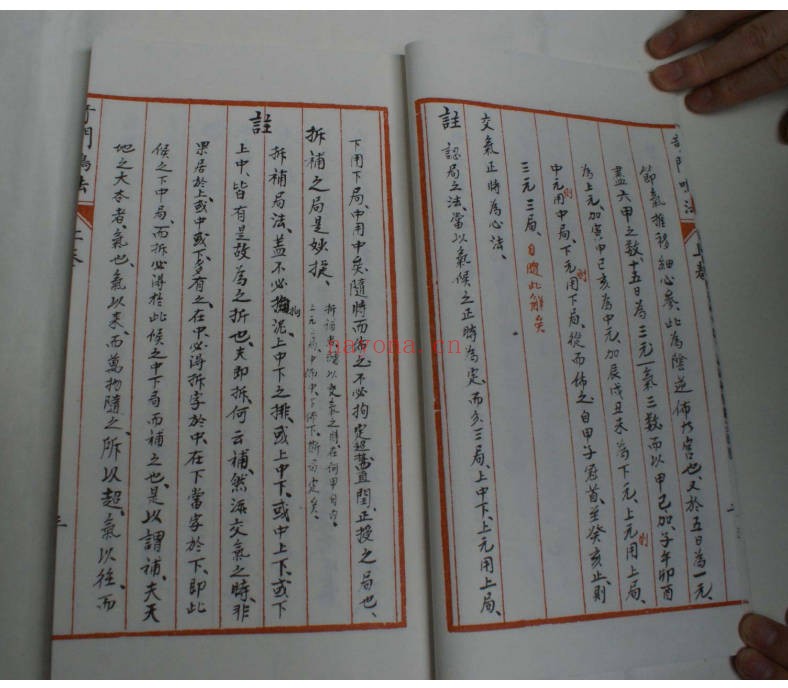 上卷
節氣推移細心參此為陰逆佈於宮也、又於五日為一元、
盡六甲之數、十五日為三元、一氣三數、而以甲己加子午卯酉
為上元、加寅申己亥為中元、加辰戌丑未為下元、上元則用上局、
中元則用中局、下元則用下局、從而佈之、自甲子為首、至癸亥止、則
三元三局、自隨此解矣
交氣正時為心法、
註 認局之法、當以氣候之正時為定、而分三局、上中下、上元用上局、
下用下局、中用中矣、隨時而佈之、不必拘定超置閏、正授之局也、
拆補之局是妙捷、
拆補者以交氣之時、在何甲日內、
上元上局、中佈中、下佈下、斷可定矣、
註 拆補局法、蓋不必拘泥上中下之排、或上中下、或中上下、或下
上中、皆有是說、為之折也、夫即拆、何云補、然泥交氣之時、非
果居於上、或中或下、多有之、在中必得拆字於中、在下當字於下、即此
候之下中局、而拆必得於此候之中下局而補之也、是以謂補、夫天
地之大本者氣也、氣以來、而萬物隨之、所以超、氣以往、而
奇門 法
上卷
三
narona.cn